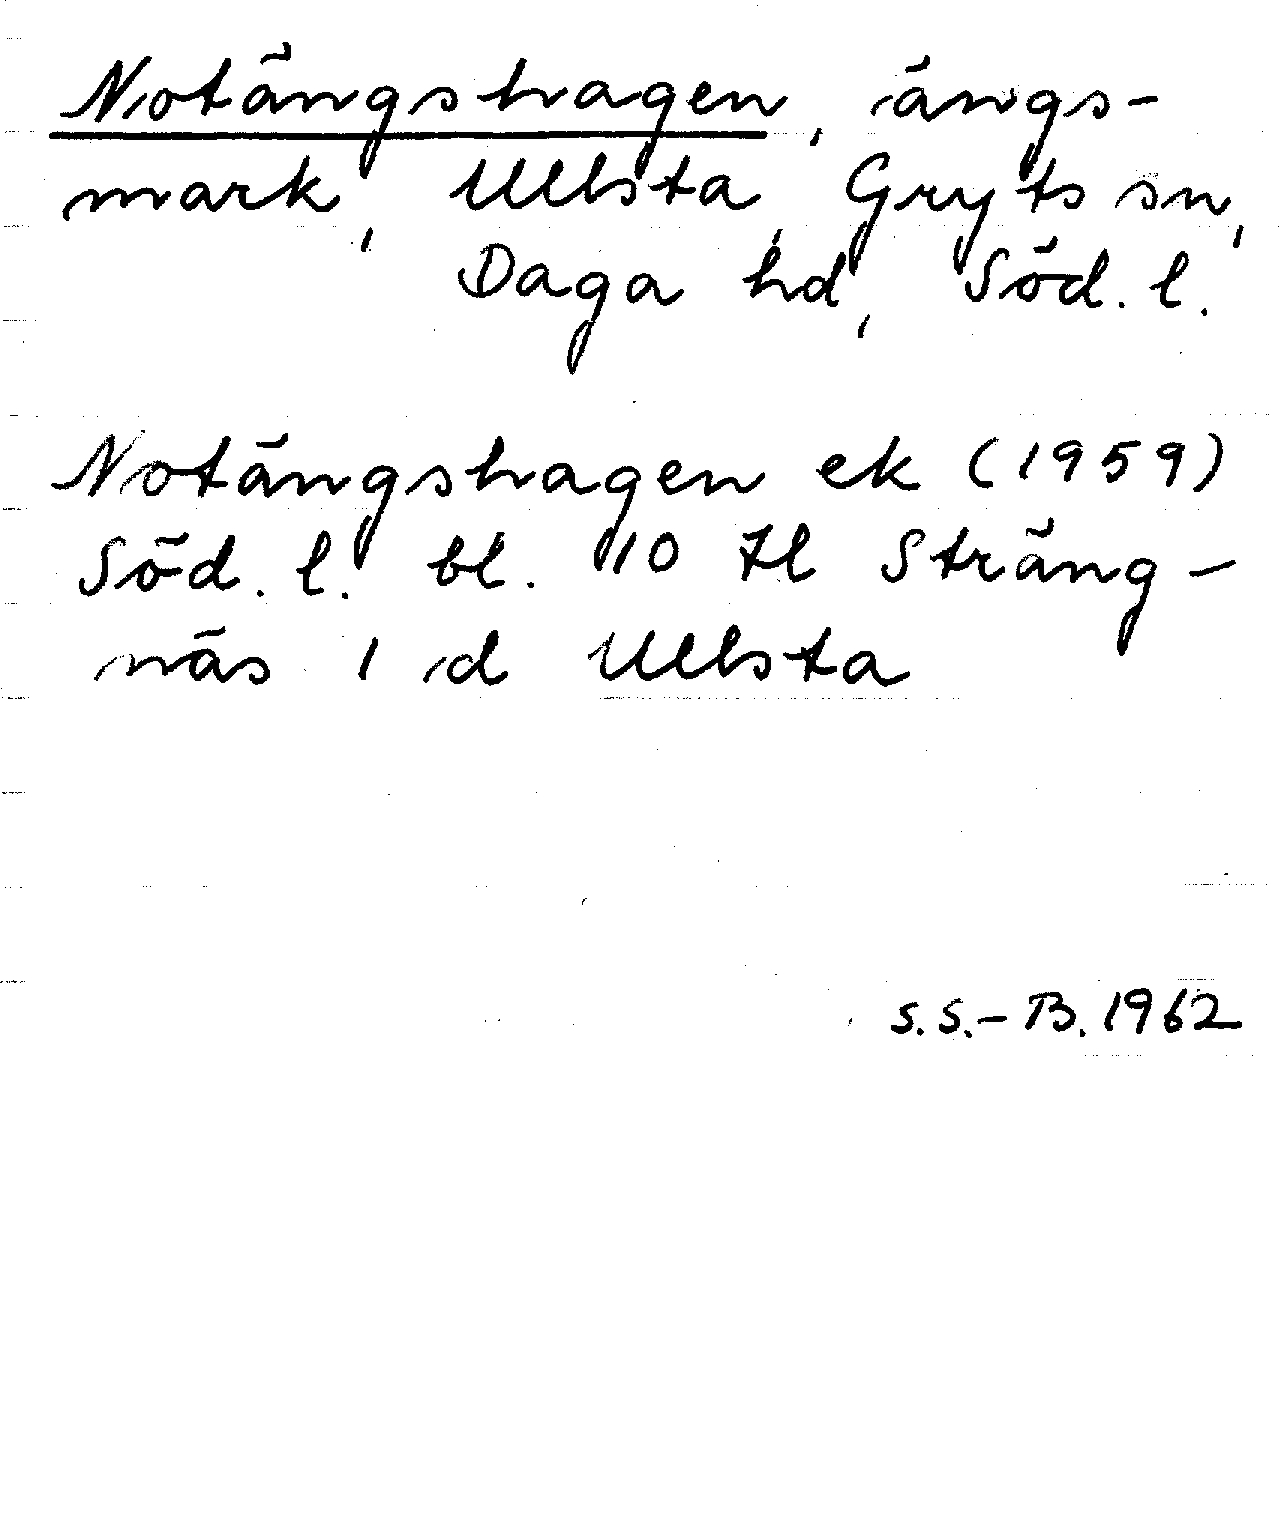 Notängshagen, ängs-
mark, Ullsta, Gryts sn,
Daga hd, Söd. l.
Notängshagen ek (1959)
Söd. l. bl. 10 Il Sträng-
näs 1 d Ullsta
S.S.-B. 1962